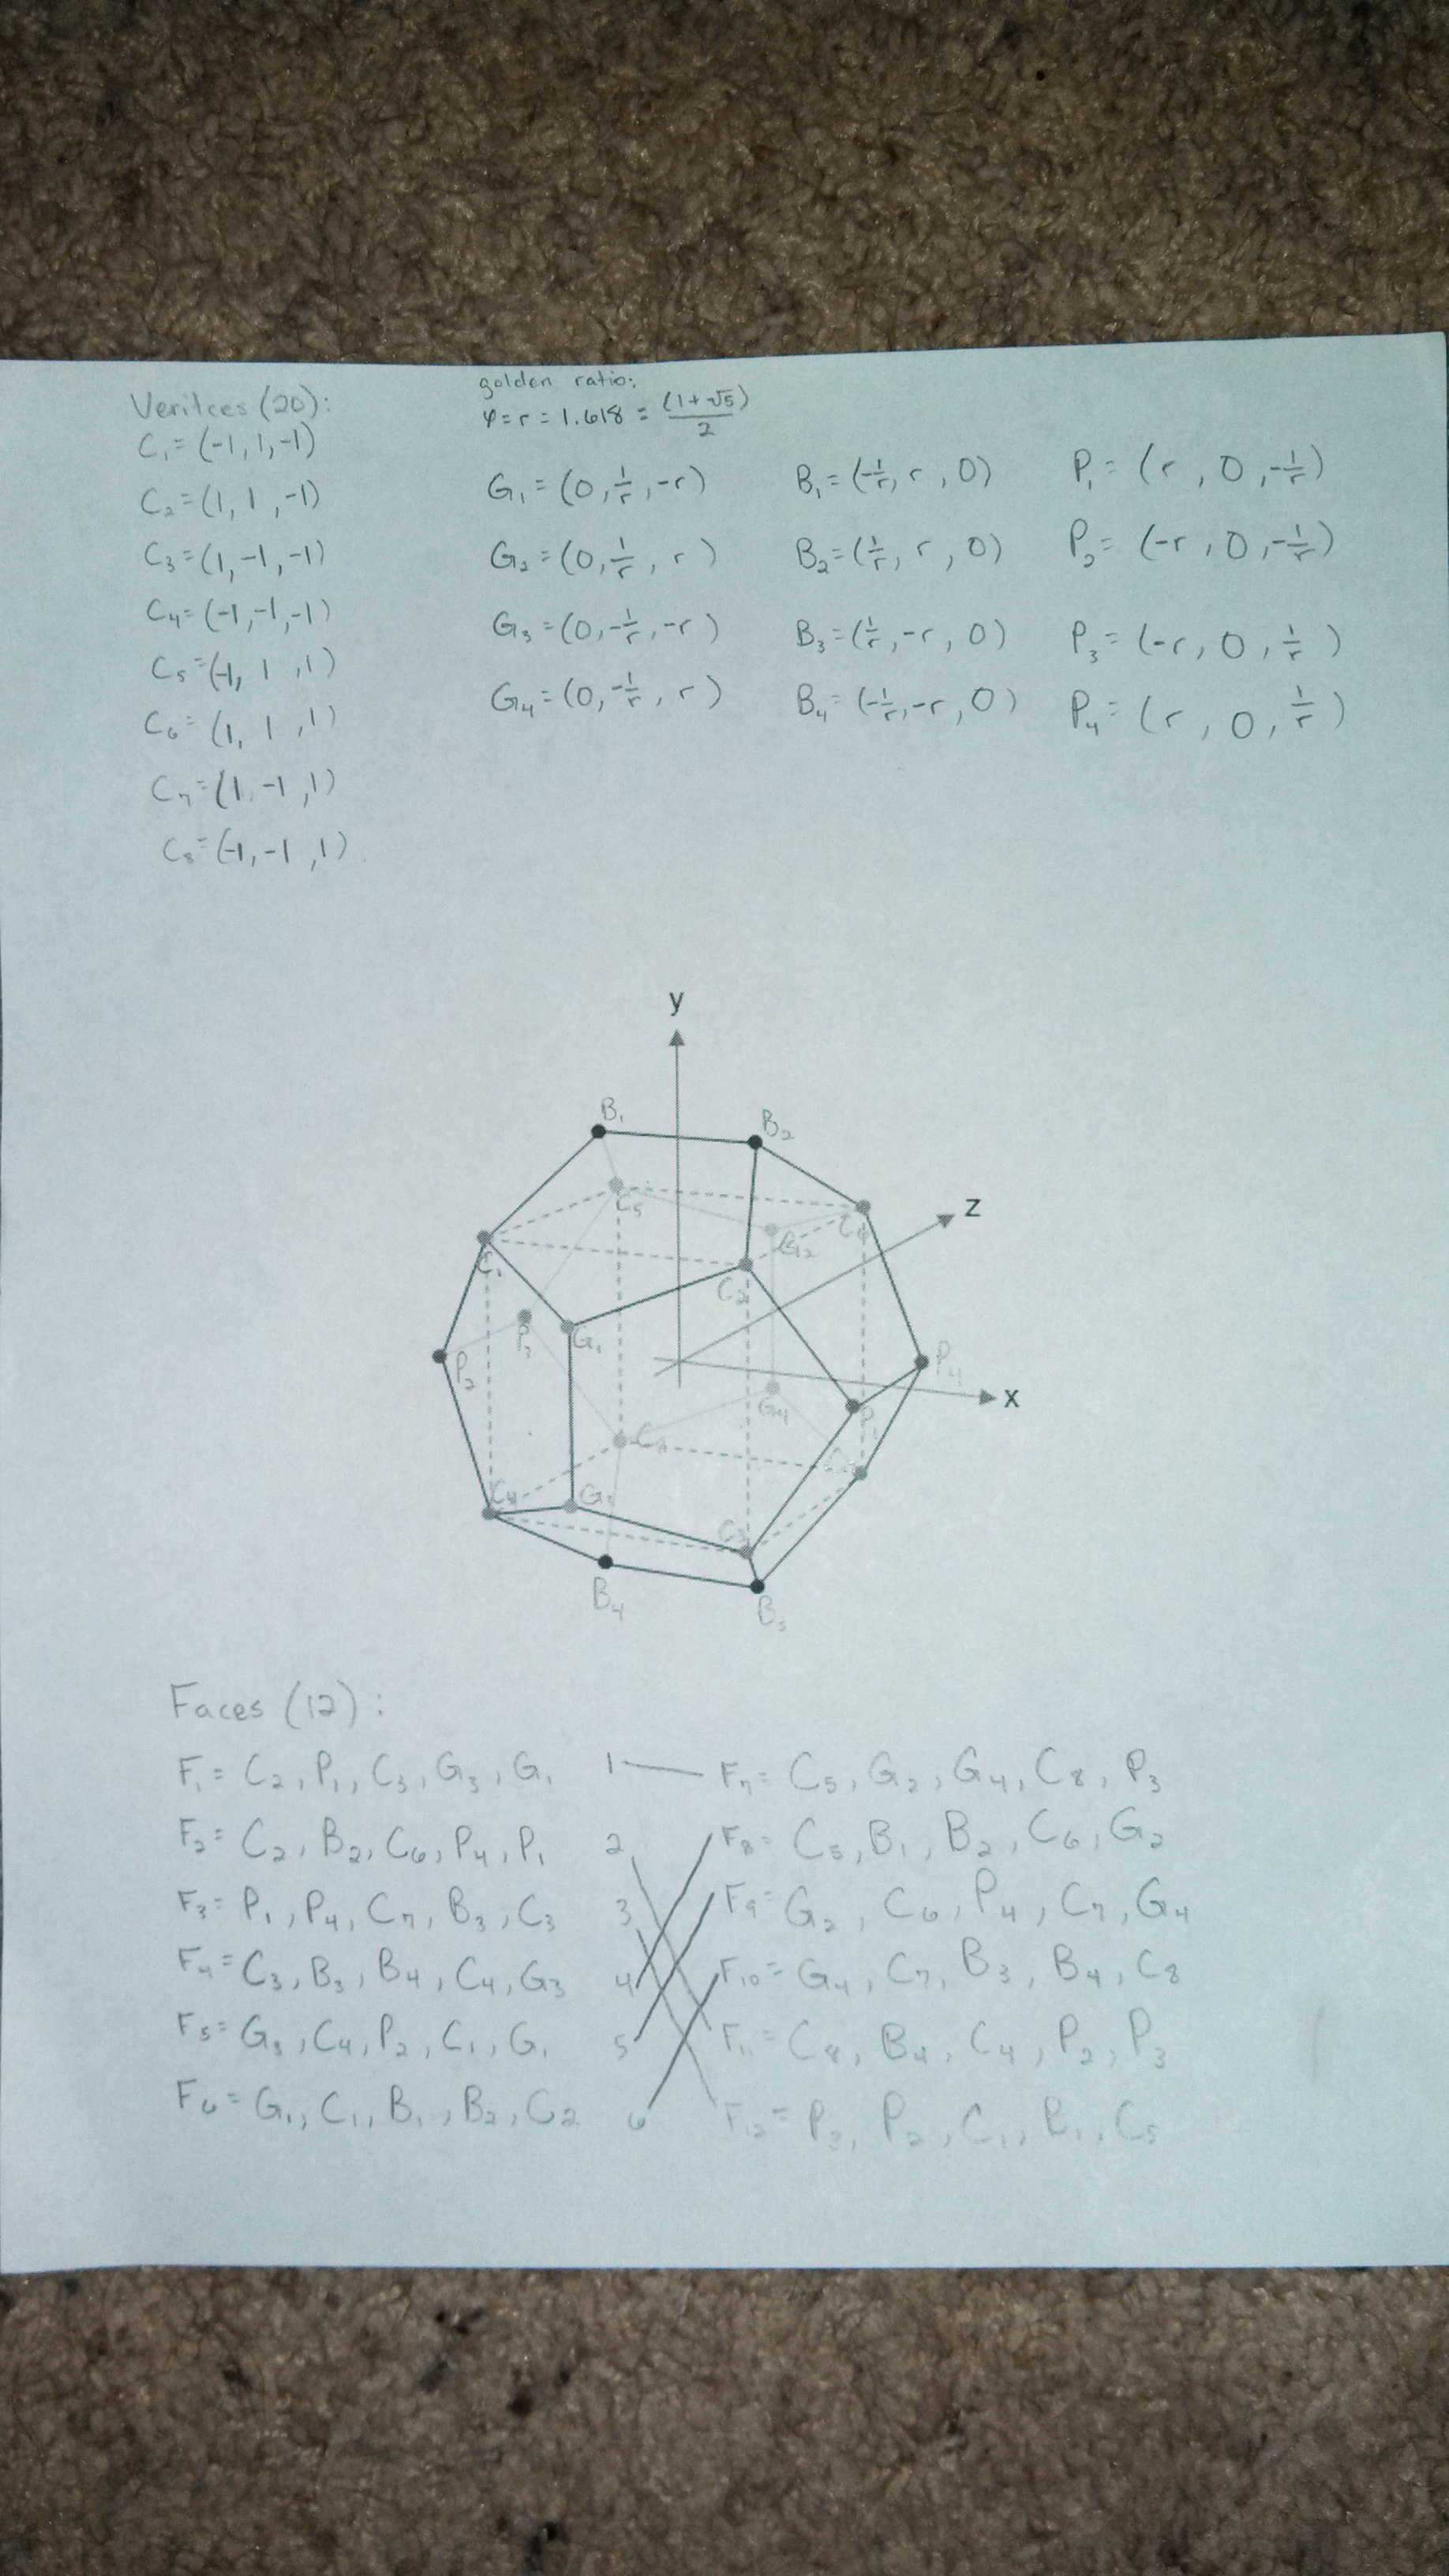 Veritces (20):
C₁=(-1,1,-1)
C₂=(1,1,-1)
C₃=(1,-1,-1)
C₄=(-1,-1,-1)
C₅=(-1,1,1)
C₆=(1,1,1)
C₇=(1,-1,1)
C₈=(-1,-1,1)
golden ratio:
φ=r=1.618=(1+√5)/2
G₁=(0,1/r,-r)
G₂=(0,1/r,r)
G₃=(0,-1/r,-r)
G₄=(0,-1/r,r)
B₁=(-1/r,r,0)
B₂=(1/r,r,0)
B₃=(1/r,-r,0)
B₄=(-1/r,-r,0)
P₁=(r,0,-1/r)
P₂=(-r,0,-1/r)
P₃=(-r,0,1/r)
P₄=(r,0,1/r)
y
B₁
B₂
C₅
z
C₆
G₂
C₁
C₂
P₃
G₁
P₂
P₄
x
G₄
P₁
C₈
C₇
C₄
G₃
C₃
B₄
B₃
Faces (12):
F₁=C₂,P₁,C₃,G₃,G₁
F₂=C₂,B₂,C₆,P₄,P₁
F₃=P₁,P₄,C₇,B₃,C₃
F₄=C₃,B₃,B₄,C₄,G₃
F₅=G₃,C₄,P₂,C₁,G₁
F₆=G₁,C₁,B₁,B₂,C₂
1
2
3
4
5
6
F₇=C₅,G₂,G₄,C₈,P₃
F₈=C₅,B₁,B₂,C₆,G₂
F₉=G₂,C₆,P₄,C₇,G₄
F₁₀=G₄,C₇,B₃,B₄,C₈
F₁₁=C₈,B₄,C₄,P₂,P₃
F₁₂=P₃,P₂,C₁,B₁,C₅